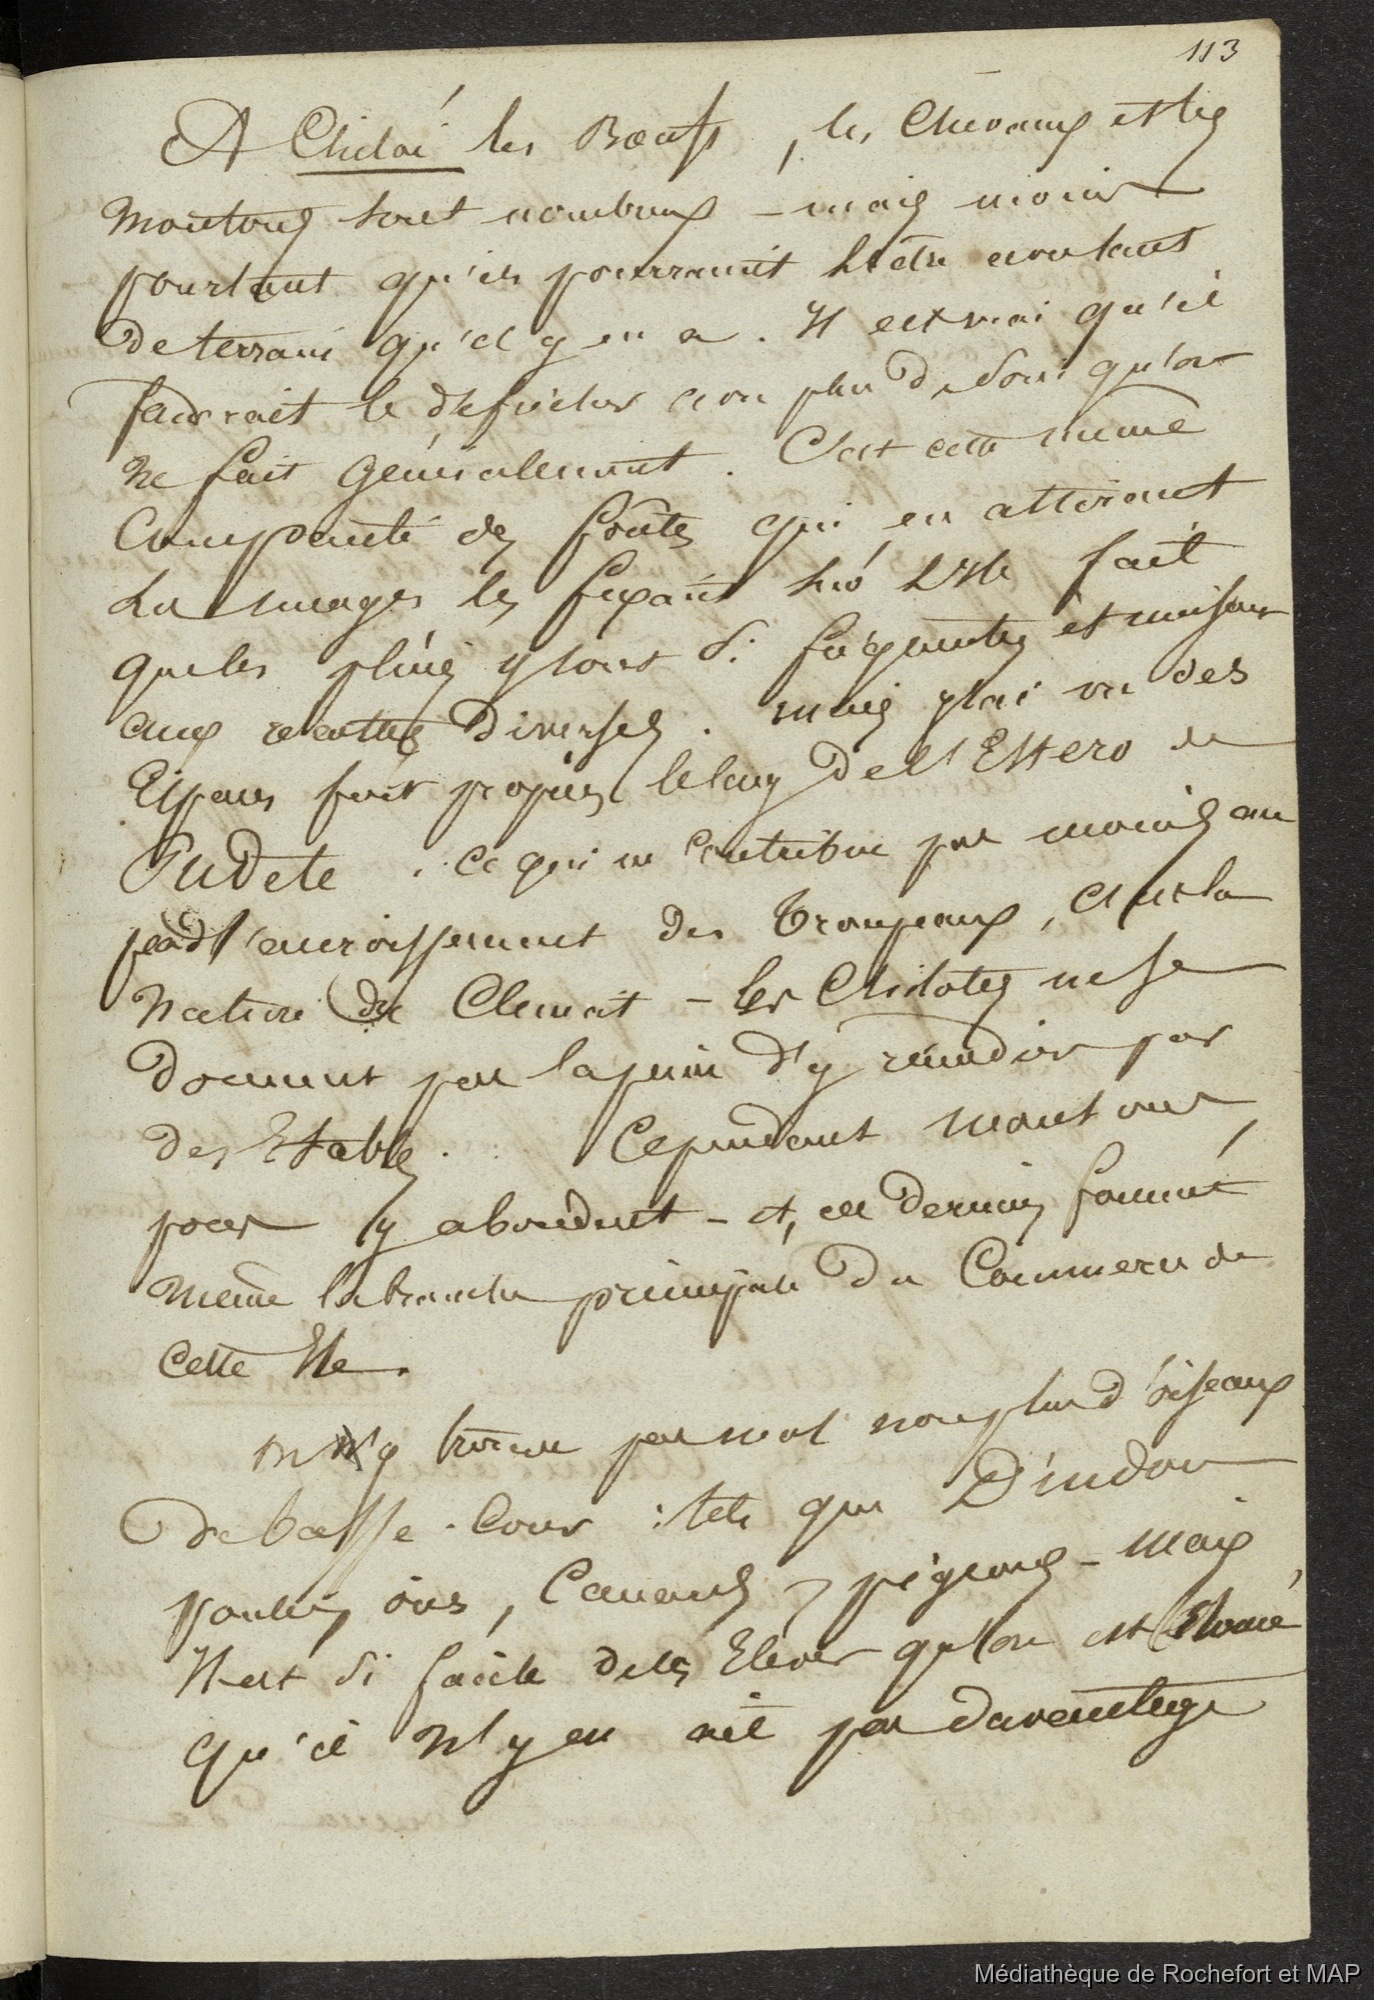 113
A Chiloé les Bœufs, les Chevaux et les
Moutons sont nombreux - mais moins
pourtant qu'ils pourraient l'être avec tant
de terrain qu'il y en a. Il est vrai qu'il
faudrait le défricher avec plus de soin qu'on
ne fait généralement. C'est cette même
Compacité des forêts qui en attirant
les nuages les fixant sur L'Isle fait
que les pluies y sont si fréquentes et nuisent
aux récoltes diverses. mais j'y ai vu des
Espaces fort propices le long de l'Estero de
Pudeto. ce qui ne contribue pas moins au
peu d'accroissement des Troupeaux, C'est la
Nature du Climat - les Chilotes ne se
donnent pas la peine d'y remédier par
des Etables. Cependant moutons,
porcs y abondent - et, ces derniers forment
même la branche principale du Commerce de
cette Ile.
On y trouve pas mal non plus d'oiseaux
de basse-Cour : tels que Dindons
poules, oies, Canards, pigeons - mais
Il est si facile de les Elever qu'on est Etonné
qu'il n'y en ait pas davantage
Médiathèque de Rochefort et MAP